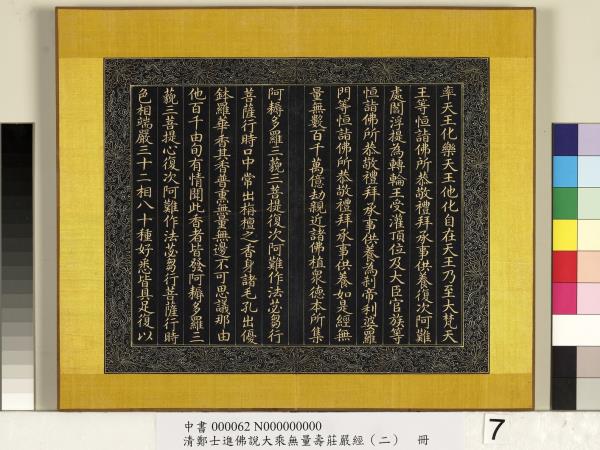 率天王化樂天王他化自在天王乃至大梵天
王等恒諸佛所恭敬禮拜承事供養復次阿難
處閻浮提為轉輪王受灌頂位及大臣官族等
恒諸佛所恭敬禮拜承事供養為剎帝利婆羅
門等恒諸佛所恭敬禮拜承事供養如是經無
量無數百千萬億劫親近諸佛植衆德本所集
阿耨多羅三藐三菩提復次阿難作法苾芻行
菩薩行時口中常出栴檀之香身諸毛孔出優
鉢羅華香其香普熏無量無邊不可思議那由
他百千由旬有情聞此香者皆發阿耨多羅三
藐三菩提心復次阿難作法苾芻行菩薩行時
色相端嚴三十二相八十種好悉皆具足復以
中書 000062 N000000000
清鄭士進佛說大乘無量壽莊嚴經（二） 冊
7